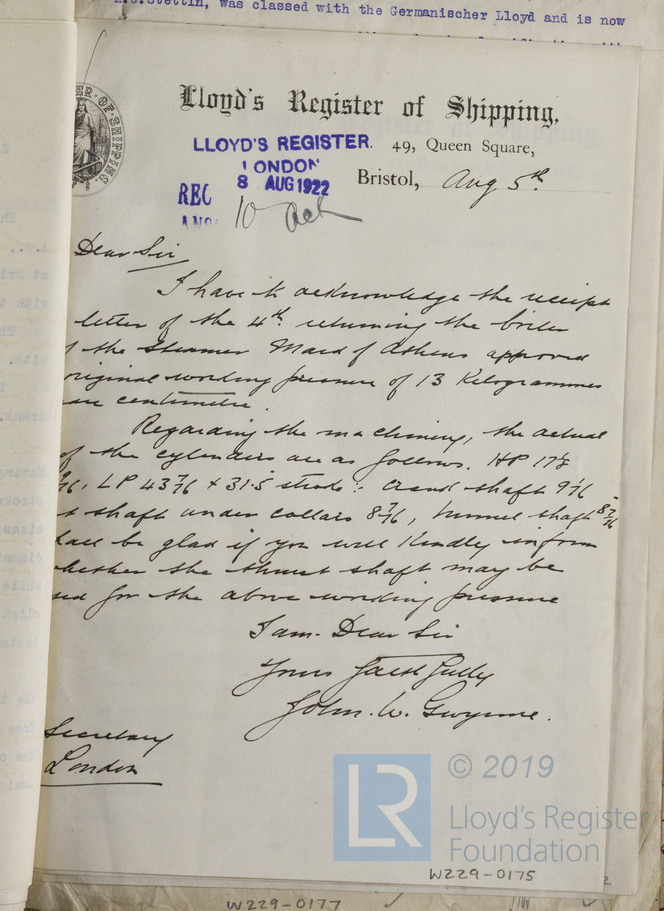 Stettin, was classed with the Germanischer Lloyd and is now
OF SHIPPING
Lloyd's Register of Shipping.
LLOYD'S REGISTER.
LONDON
REC 8 AUG 1922
49, Queen Square,
Bristol, Aug 5th
10
Dear Sir
I have to acknowledge the receipt
letter of the 4th returning the boiler
the Steamer Maid of Athens approved
original working pressure of 13 Kilogrammes
centimetre.
Regarding the machinery, the actual
of the cylinders are as follows. HP 17
LP 43 7/16 x 31.5 stroke: crank shaft 9 1/16
shaft under collars 8 7/16, tunnel shaft 8 7/16
shall be glad if you will kindly inform
whether the thrust shaft may be
for the above working pressure
I am. Dear Sir
Yours faithfully
John. W. Gwynne.
Secretary
London
LR
© 2019
Lloyd's Register
Foundation
W229-0175
W229-0177